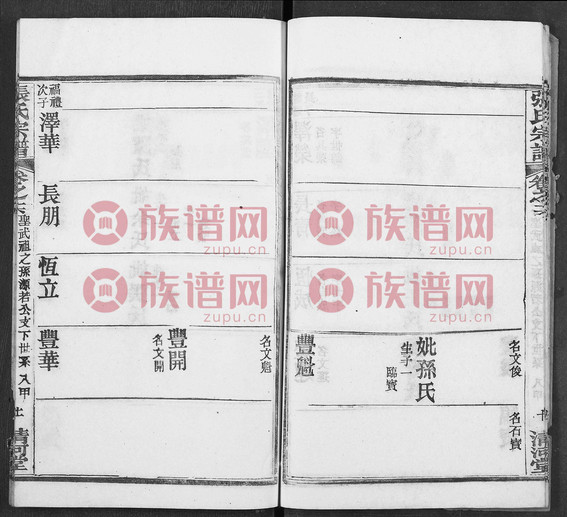 張氏宗譜
卷之六
名文俊
名石寶
妣孫氏
生子一
臨寶
豐魁
名文魁
豐開
名文開
福禮
次子
澤華
長朋
恆立
豐華
張氏宗譜
卷之六
聖武祖之孫
公支下世系
八甲
清河堂
清河堂
族谱网
zupu.cn
族谱网
zupu.cn
族谱网
zupu.cn
族谱网
zupu.cn
族谱网
zupu.cn
族谱网
zupu.cn